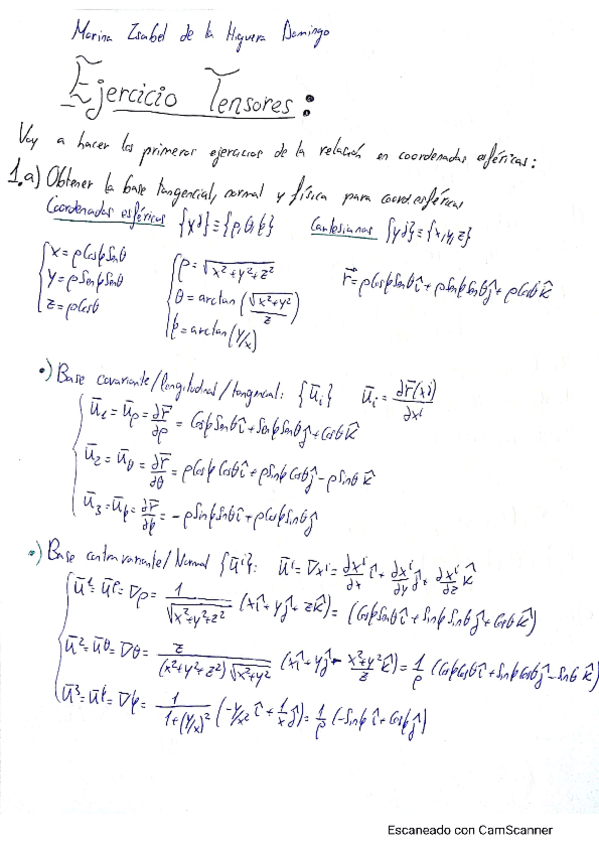 Marina Isabel de la Higuera Domingo
Ejercicio Tensores:
Voy a hacer los primeros ejercicios de la relación en coordenadas esféricas:
1.a) Obtener la base tangencial, normal y física para coord esféricas
Coordenadas esféricas {yʲ}≡{ρ,θ,φ} Cartesianas {yʲ}≡{x,y,z}
x=ρCosφSenθ
y=ρSenφSenθ
z=ρCosθ
ρ=√(x²+y²+z²)
θ=arctan(√(x²+y²)/z)
φ=arctan(y/x)
r⃗=ρCosφSenθî+ρSenφSenθĵ+ρCosθk̂
•) Base covariante/longitudinal/tangencial: {ūᵢ} ūᵢ=∂r̄(xʲ)/∂xⁱ
ū₁=ūρ=∂r̄/∂ρ=CosφSenθî+SenφSenθĵ+Cosθk̂
ū₂=ūθ=∂r̄/∂θ=ρCosφCosθî+ρSenφCosθĵ-ρSinθk̂
ū₃=ūφ=∂r̄/∂φ=-ρSinφSinθî+ρCosφSinθĵ
•) Base contravariante/Normal {ūⁱ}: ūⁱ=∇xⁱ=∂xⁱ/∂x î+∂xⁱ/∂y ĵ+∂xⁱ/∂z k̂
ū¹=ūᵖ=∇ρ=1/√(x²+y²+z²) (xî+yĵ+zk̂)=(CosφSinθî+SinφSinθĵ+Cosθk̂)
ū²=ūθ=∇θ=z/((x²+y²+z²)√(x²+y²)) (xî+yĵ-(x²+y²)/z k̂)=1/ρ (CosφCosθî+SinφCosθĵ-Sinθk̂)
ū³=ūφ=∇φ=1/(1+(y/x)²) (-y/x² î+1/x ĵ)=1/ρ (-Sinφî+Cosφĵ)
Escaneado con CamScanner